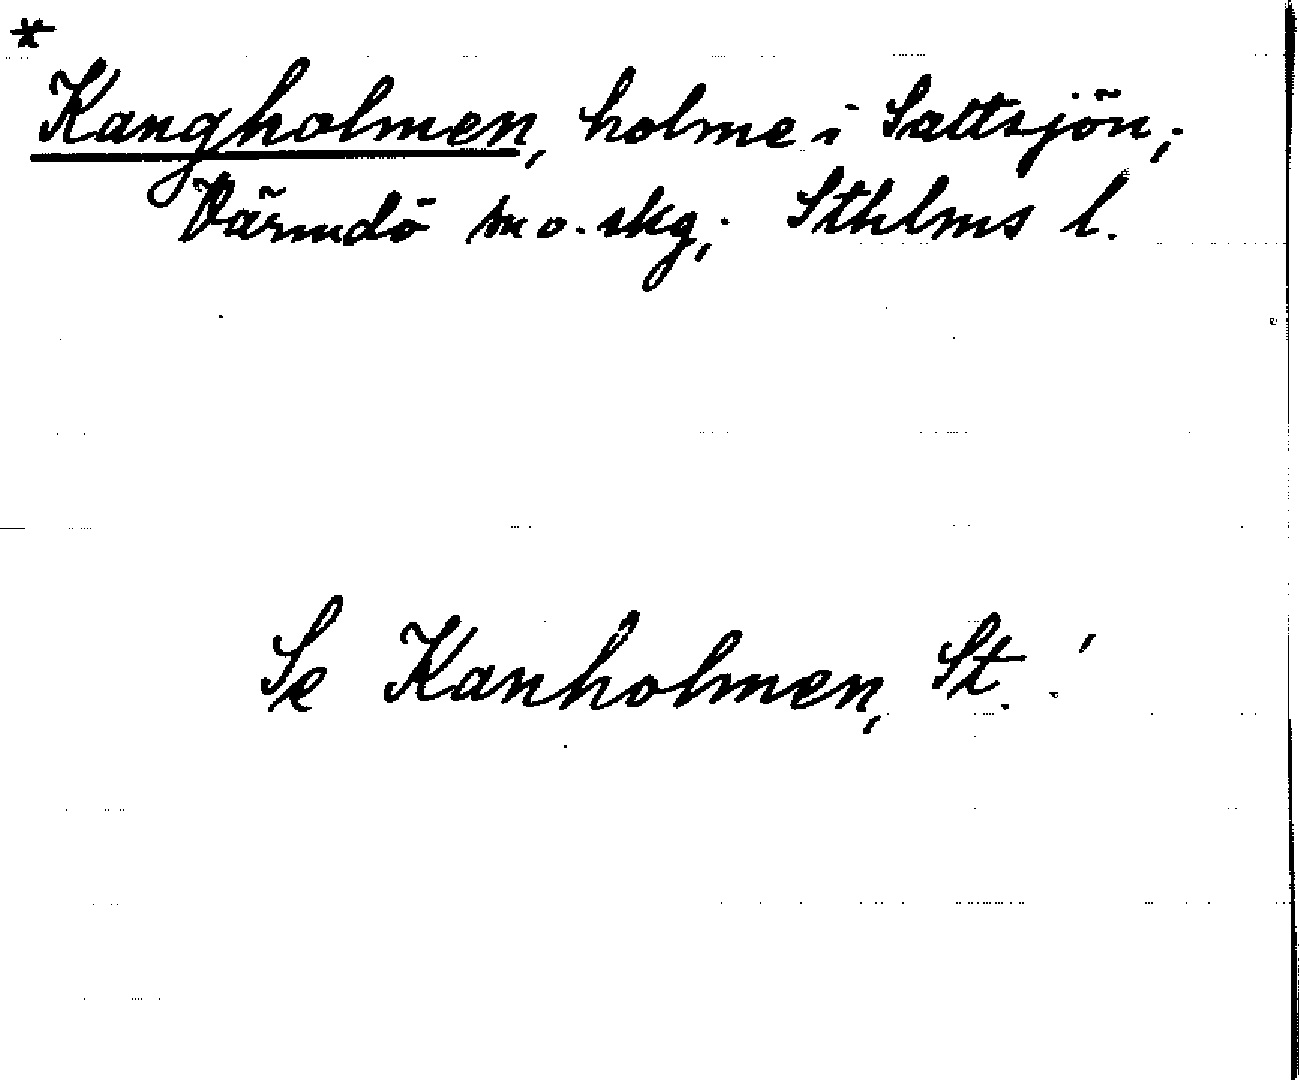 *
Kangholmen, holme i Saltsjön,
Värmdö sn o. skg, Sthlms l.
Se Kanholmen, St.!